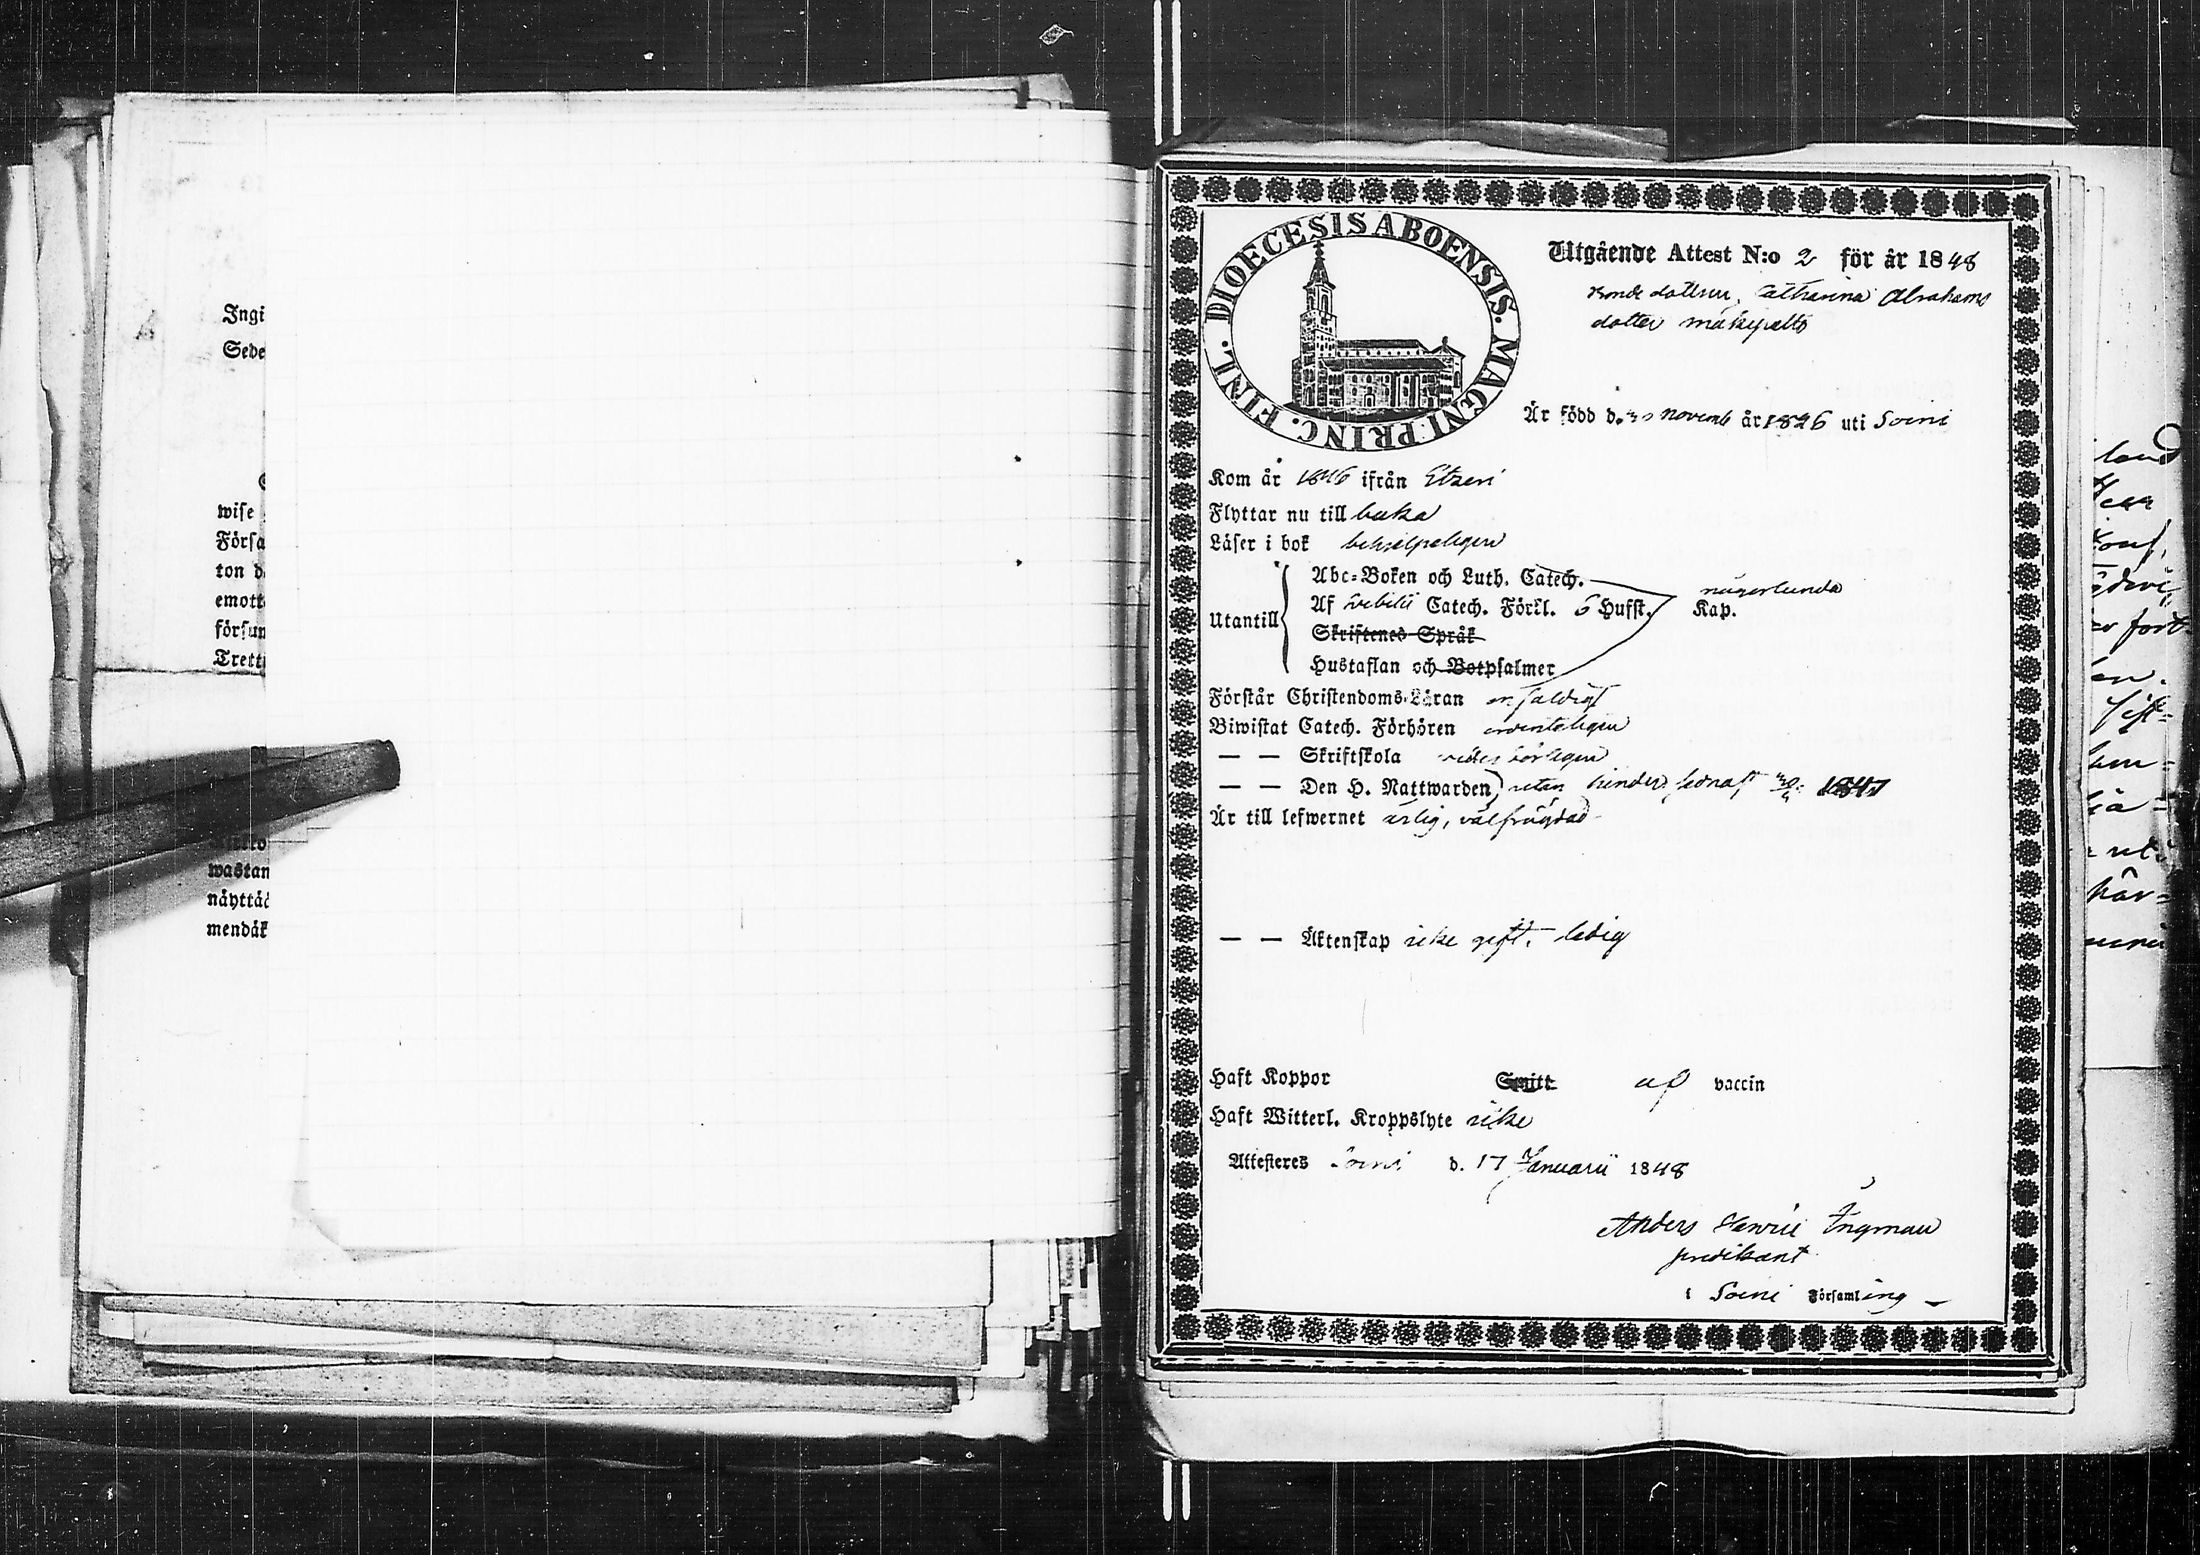 Ingi
Sede
wise
Förs
ton d
emott
försum
Trett
wastan
näyttä
mendäk
DIOECESIS ABOENSIS. MAGNI PRINC. FINL.
Utgående Attest N:o 2 för år 1848
Bonde dottren, Catharina Abrahams
dotter mäkipelto
Är född d. novemb år 1826 uti Soini
Kom år 1846 ifrån Etzeri
Flyttar nu till
Läser i bok behjelpeligen
Utantill
Abc-Boken och Luth. Catech.
Af Svebilii Catech. Förkl. 6 Hufst. Kap. någorlunda
Skriftenes Språk
Hustaflan och Botpsalmer
Förstår Christendoms-Läran enfaldigt
Biwistat Catech. Förhören ordenteligen
— — Skriftskola vederbörligen
— — Den H. Nattwarden, utan hinder, 1847
Är till lefwernet ärlig, välfrägdad
— — Äktenskap icke gift. ledig
Haft Koppor Smitt af vaccin
Haft Witterl. Kroppslyte icke
Attesteres Soini d. 17 Januarii 1848
Anders Henric Ingman
predikant
i Soini Församling
land
Herr
fort